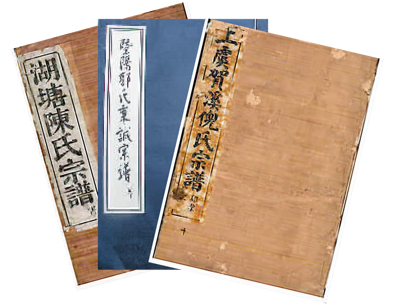 湖塘陳氏宗譜
暨陽郭氏秉誠宗譜
上虞賀溪倪氏宗譜